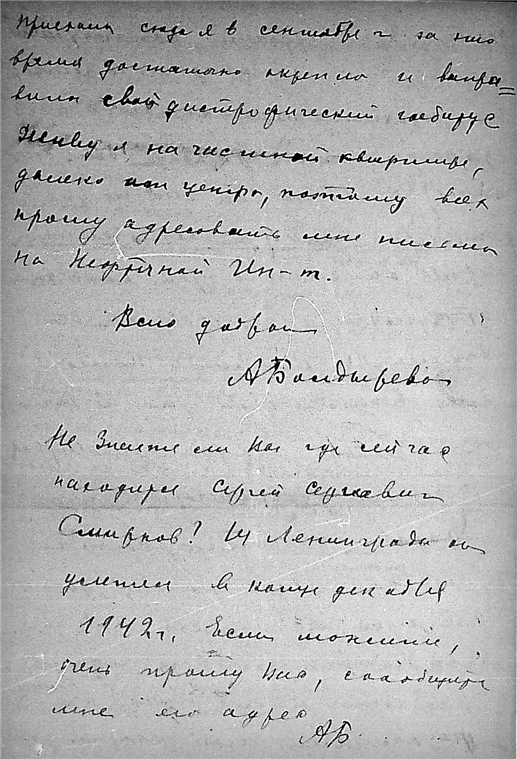 Приехала сюда я в сентябре и за это
время достаточно окрепла и выпра=
вила свой дистрофический габитус
Живу я на частной квартире,
далеко от центра, поэтому всех
прошу адресовать мне письма
на Нефтяной Ин-т.
Всего доброго
АБолдырева
Не знаете ли Вы где сейчас
находится Сергей Сергеевич
Смирнов? Из Ленинграда он
улетел в конце декабря
1942г. Если можете,
очень прошу Вас, сообщите
мне его адрес
АБ